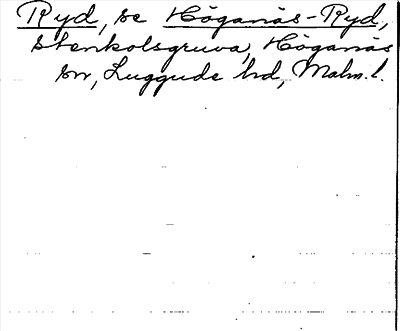 Ryd, se Höganäs-Ryd,
stenkolsgruva, Höganäs
sn, Luggude hd, Malm. l.